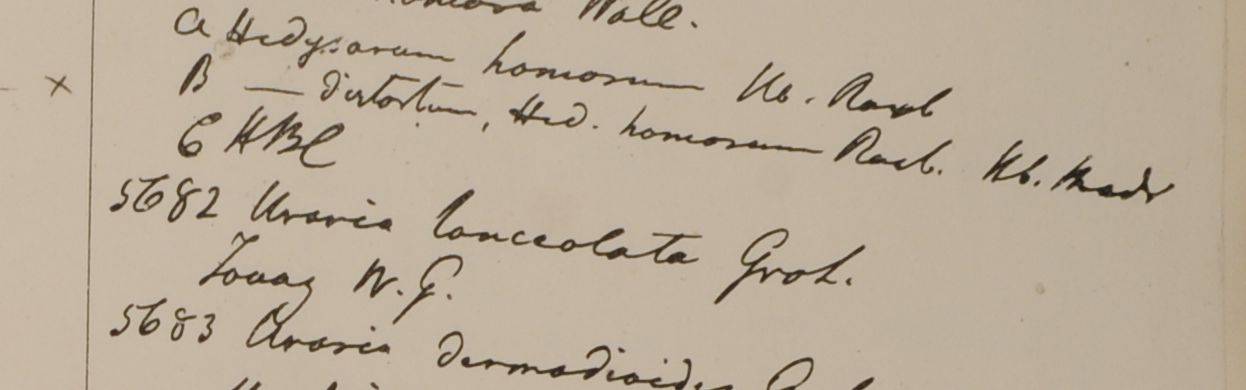 Wall.
a Hedysarum hamosum Hb. Roxb
B — distortum, Hed. hamosum Roxb. Hb. Madr
C HBC
5682 Uraria lanceolata Grah.
Tavoy W.G.
5683 Uraria